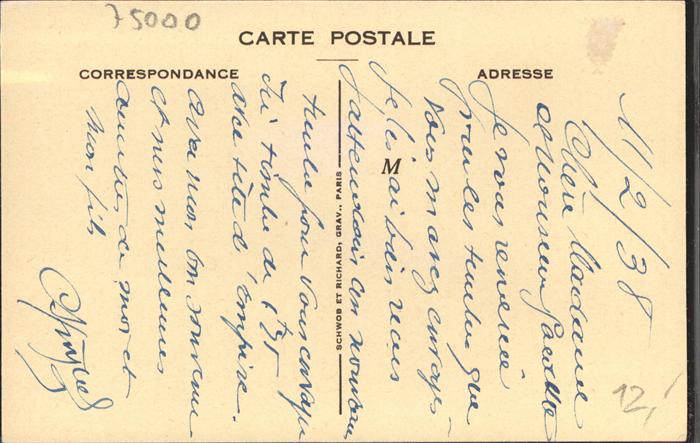 75000
CARTE POSTALE
CORRESPONDANCE
ADRESSE
M
SCHWOB ET RICHARD, GRAV., PARIS
11/2/38
Chère Madame
et Monsieur
Je vous remercie
pour les timbres que
vous m'avez envoyé
Je les ai bien reçus
J'attendais un nouveau
timbre pour vous
J'ai timbre de 1,75
une tête d'empire.
avec mon bon souvenir
et mes meilleures
amitiés de moi et
mon fils
12,